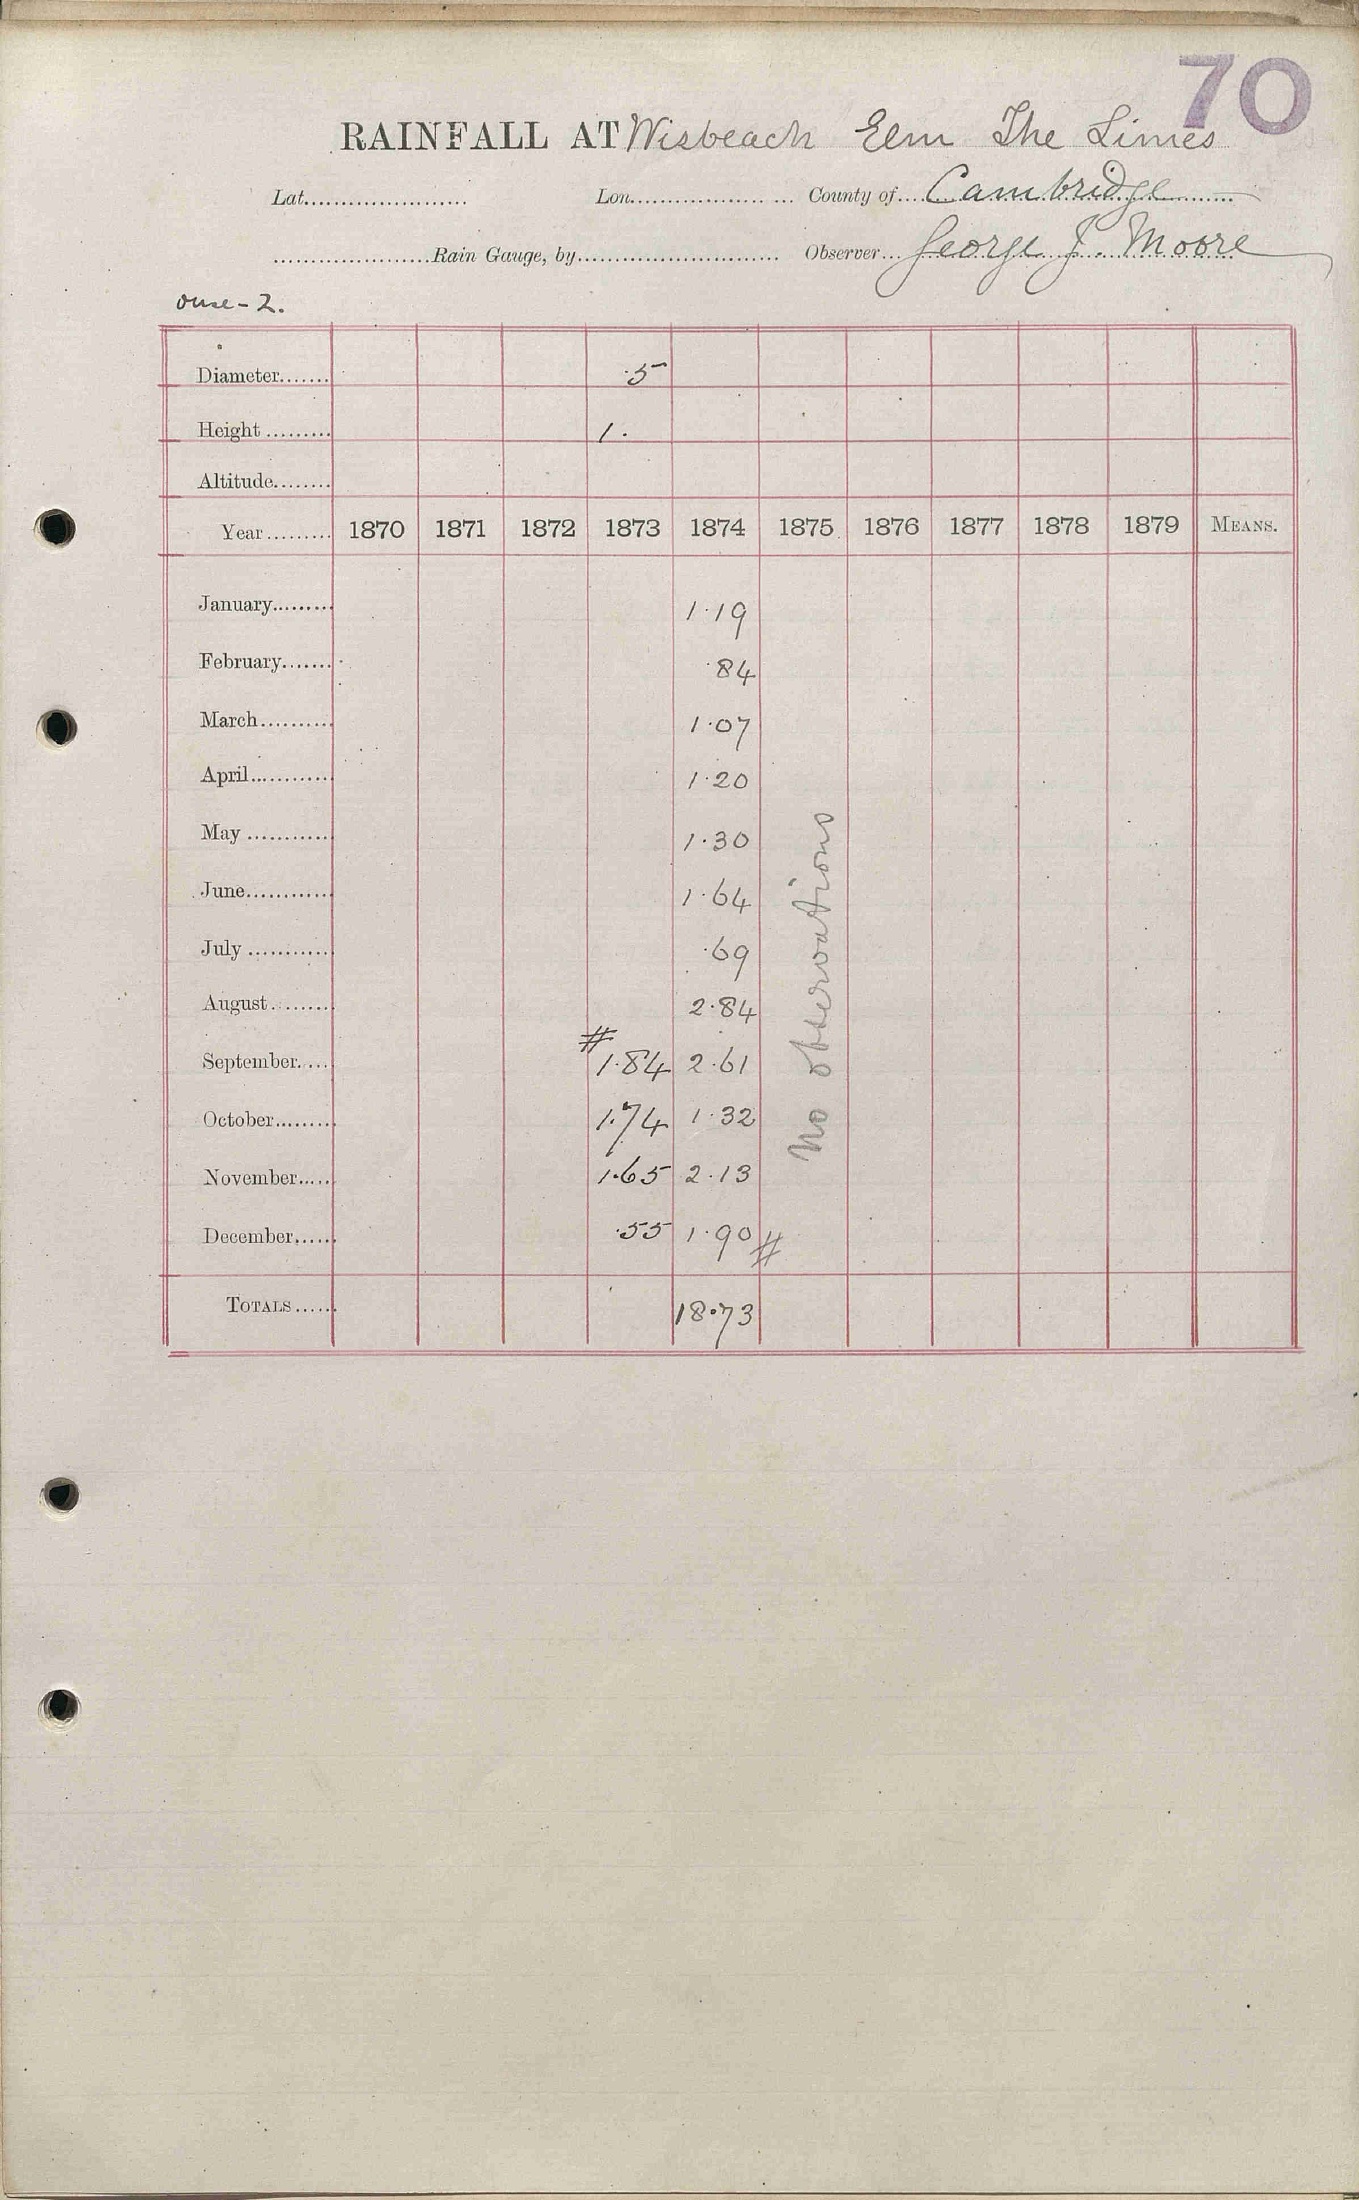 70
RAINFALL AT Wisbeach Elm The Limes
Lat. Lon. County of Cambridge
Rain Gauge, by Observer George J. Moore
ouse-2.
Diameter ·5
Height 1.
Altitude
Year 1870 1871 1872 1873 1874 1875 1876 1877 1878 1879 MEANS.
January 1·19
February ·84
March 1·07
April 1·20
May 1·30
June 1·64
July ·69
August 2·84
September # 1·84 2·61
October 1·74 1·32
November 1·65 2·13
December ·55 1·90 #
No observations
TOTALS 18·73